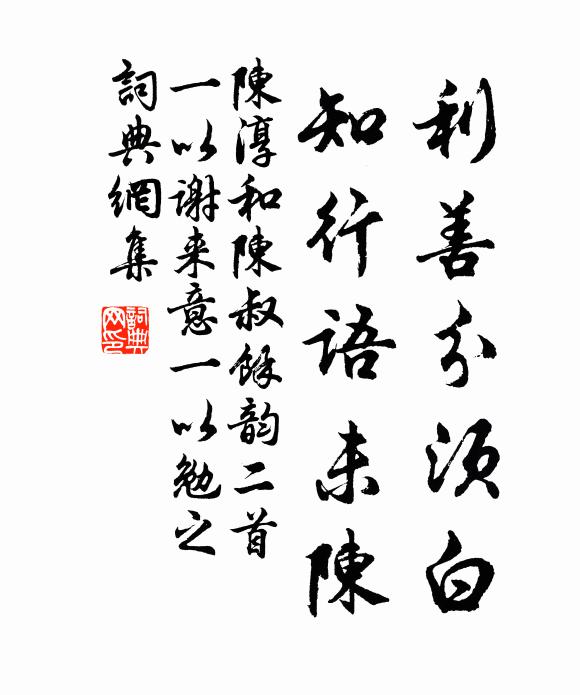 利善分须白
知行語未陳
陳淳和陳叔餘韵二首
一以謝来意一以勉之
詞典網集
詞典网印